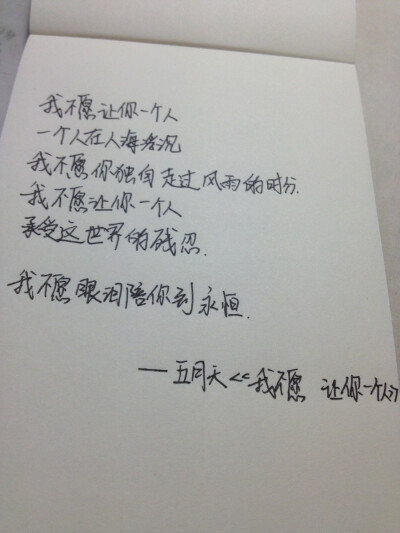 我不愿让你一个人
一个人在人海浮沉
我不愿你独自走过风雨的时分.
我不愿让你一个人
承受这世界的残忍.
我不愿眼泪陪你到永恒.
——五月天<<我不愿 让你一个人>>